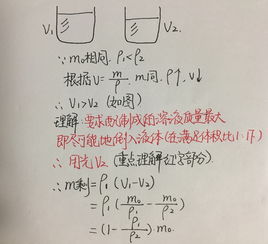 V₁ V₂
∵ m₀相同, ρ₁<ρ₂
根据V=m/ρ, m同, ρ↑, V↓
∴ V₁>V₂ (如图)
理解:要求配制成的溶液质量最大
即尽可能地倒入液体(还满足体积比1:1)
∴ 用光V₂ (重点理解红字部分)
∴ m剩=ρ₁(V₁-V₂)
=ρ₁(m₀/ρ₁-m₀/ρ₂)
=(1-ρ₁/ρ₂)m₀